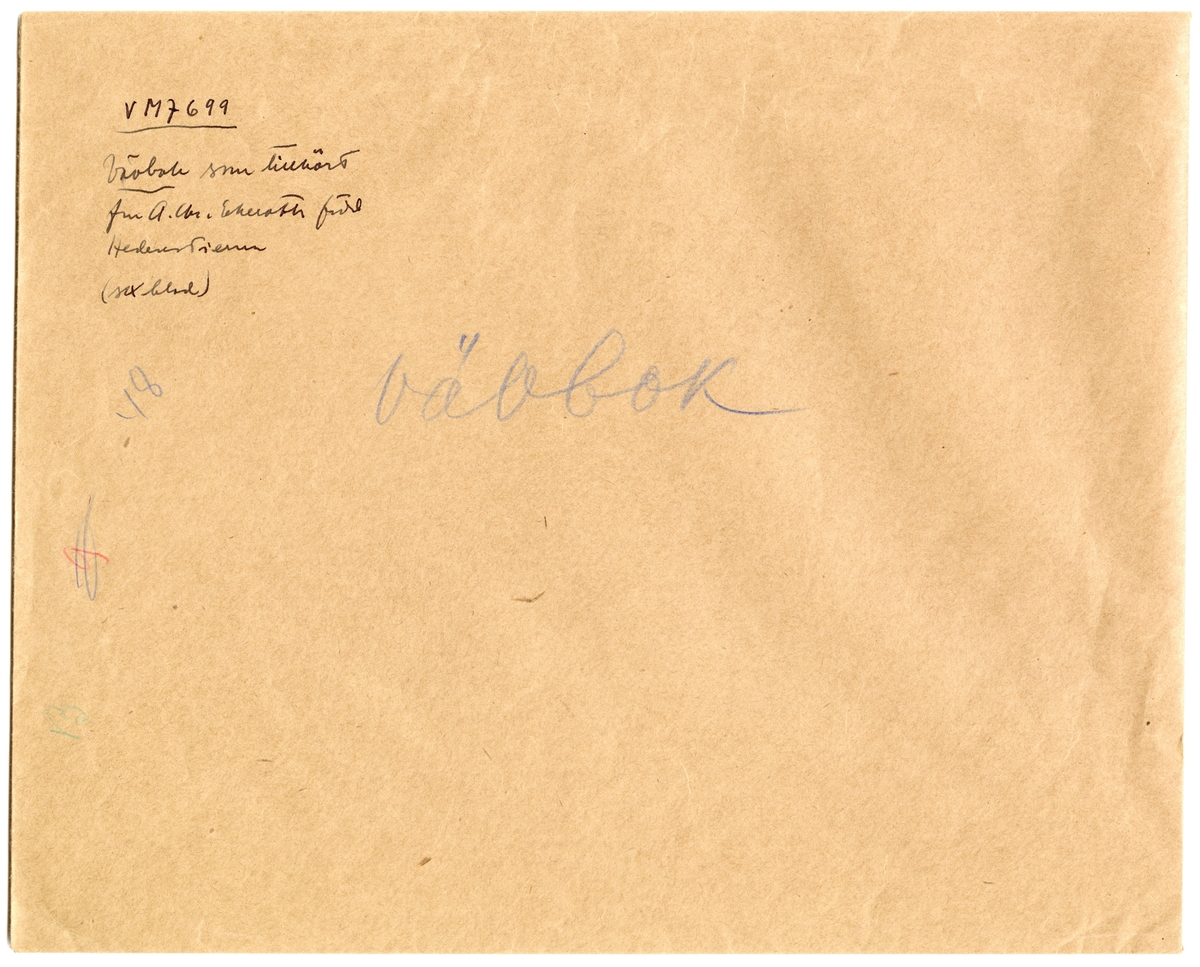 VM7699
Vävbok som tillhört
fru A. Chr. Ekeroth född
Hedenstierna
(sex blad)
vävbok
48
13